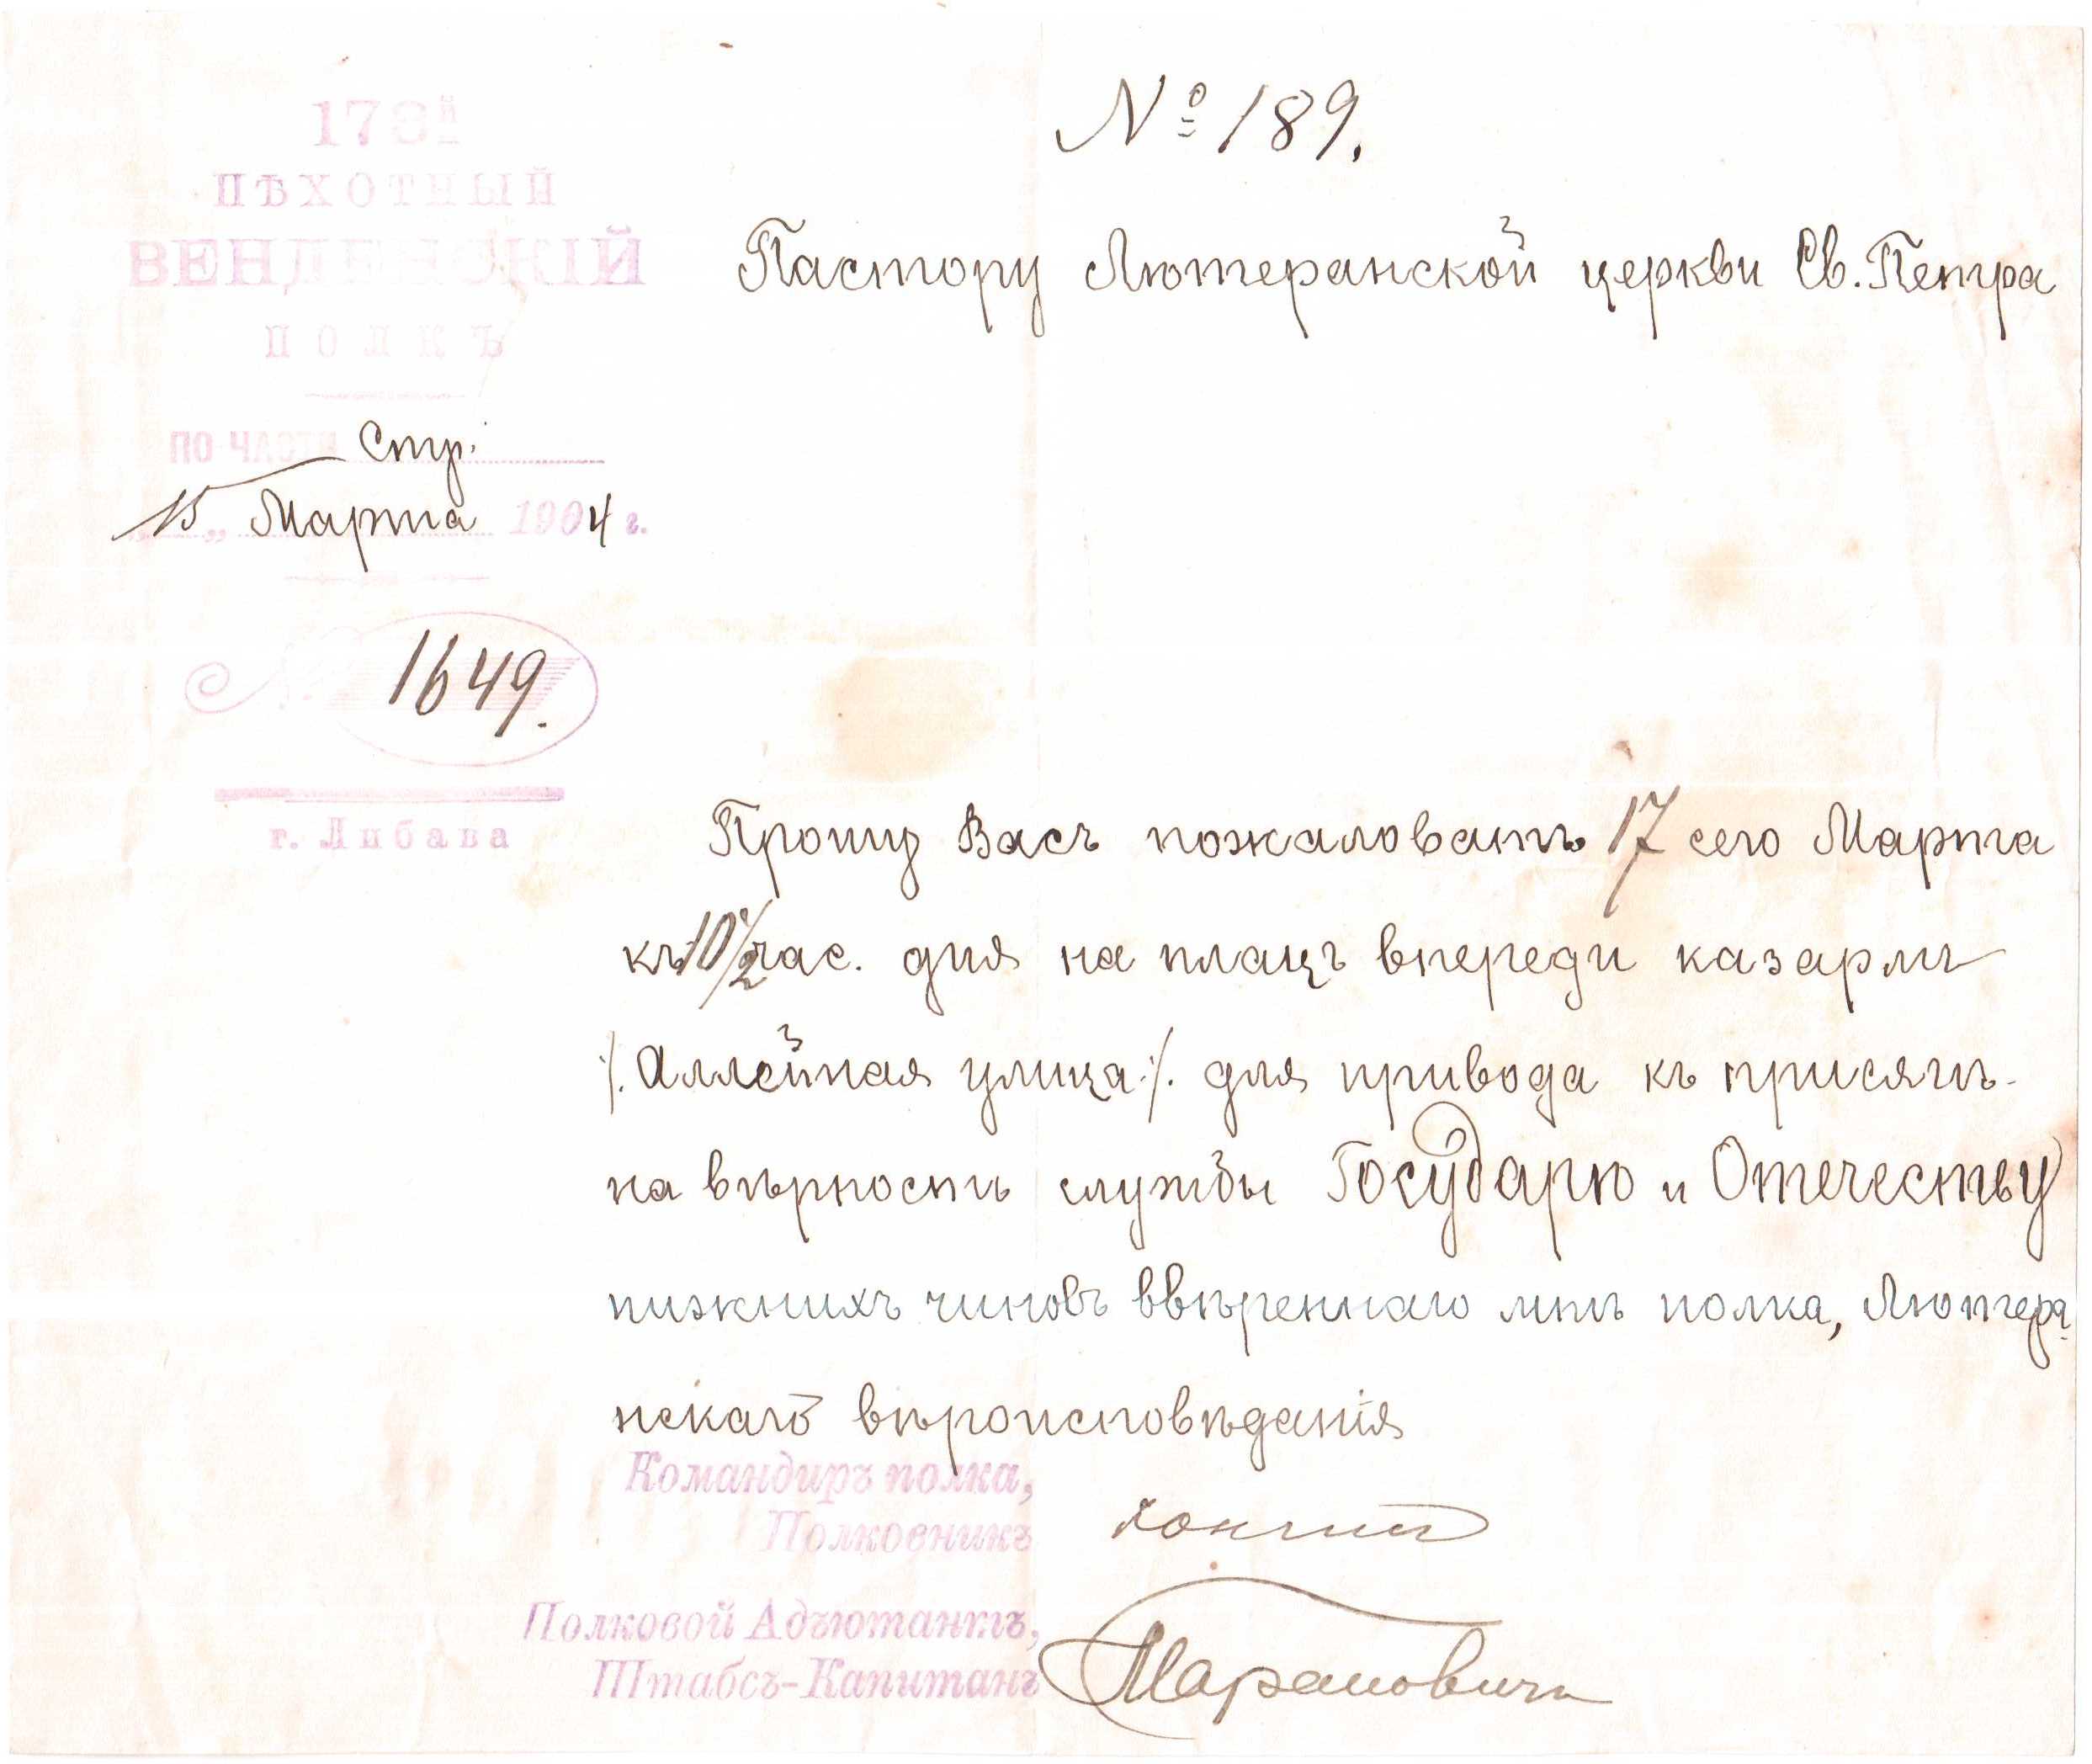 178й
ПѢХОТНЫЙ
ВЕНДЕНСКІЙ
ПОЛКЪ
ПО ЧАСТИ Стр.
„15„ Марта 1904 г.
№ 1649.
г. Либава
№ 189.
Пастору Лютеранской церкви Св. Петра
Прошу Васъ пожаловать 17 сего Марта
къ 10 1/2 час. дня на плацъ впереди казармъ
/. Аллейная улица ./. для привода къ присягѣ
на вѣрность службы Государю и Отечеству
нижнихъ чиновъ ввѣреннаго мнѣ полка, Лютера-
нскаго вѣроисповѣданія
Командиръ полка,
Полковникъ
Полковой Адъютантъ,
Штабсъ-Капитанъ